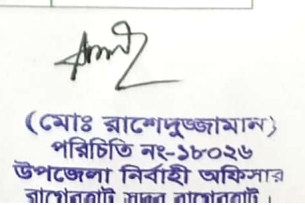 (মোঃ রাশেদুজ্জামান)
পরিচিতি নং-১৮০২৬
উপজেলা নির্বাহী অফিসার
বাগেরহাট সদর বাগেরহাট।